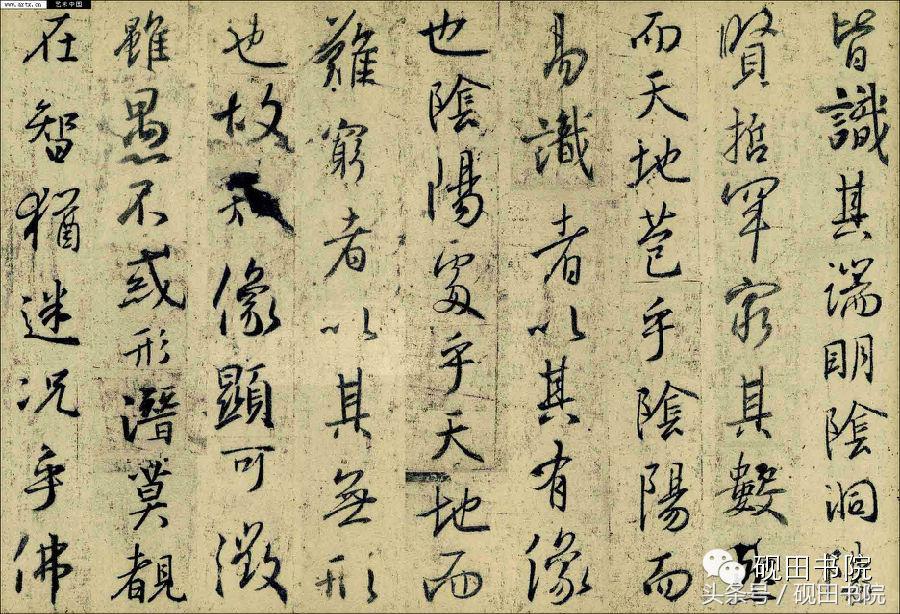 皆識其端明陰洞陽
賢哲罕窮其數然
而天地苞乎陰陽而
易識者以其有像
也陰陽處乎天地而
難窮者以其無形
也故知像顯可徵
雖愚不惑形潛莫覩
在智猶迷況乎佛
www.artx.cn 艺术中国
砚田书院
头条号 / 砚田书院